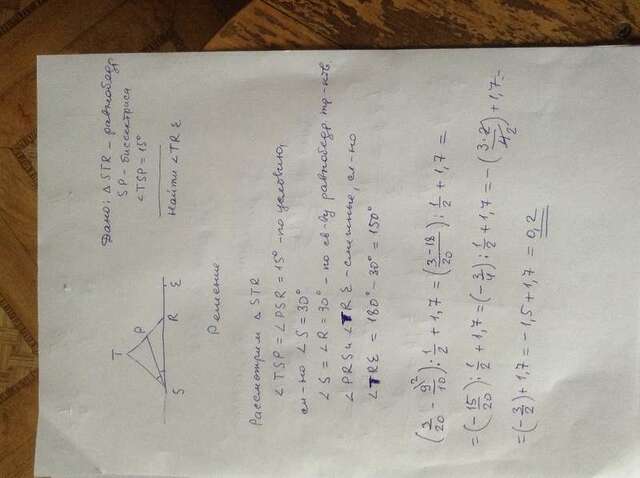 Дано: △STR - равнобедр
SP - биссектриса
∠TSP = 15°
Найти ∠TRE
T
P
S
R
E
Решение
Рассмотрим △STR
∠TSP = ∠PSR = 15° - по условию,
сл-но ∠S = 30°
∠S = ∠R = 30° - по св-ву равнобедр. тр-ков
∠PRS и ∠TRE - смежные, сл-но
∠TRE = 180° - 30° = 150°
(3/20 - 9\2/10) : 1/2 + 1,7 = (3-18/20) : 1/2 + 1,7 =
= (-15/20) : 1/2 + 1,7 = (-3/4) : 1/2 + 1,7 = -(3·2/4 2) + 1,7 =
= (-3/2) + 1,7 = -1,5 + 1,7 = 0,2